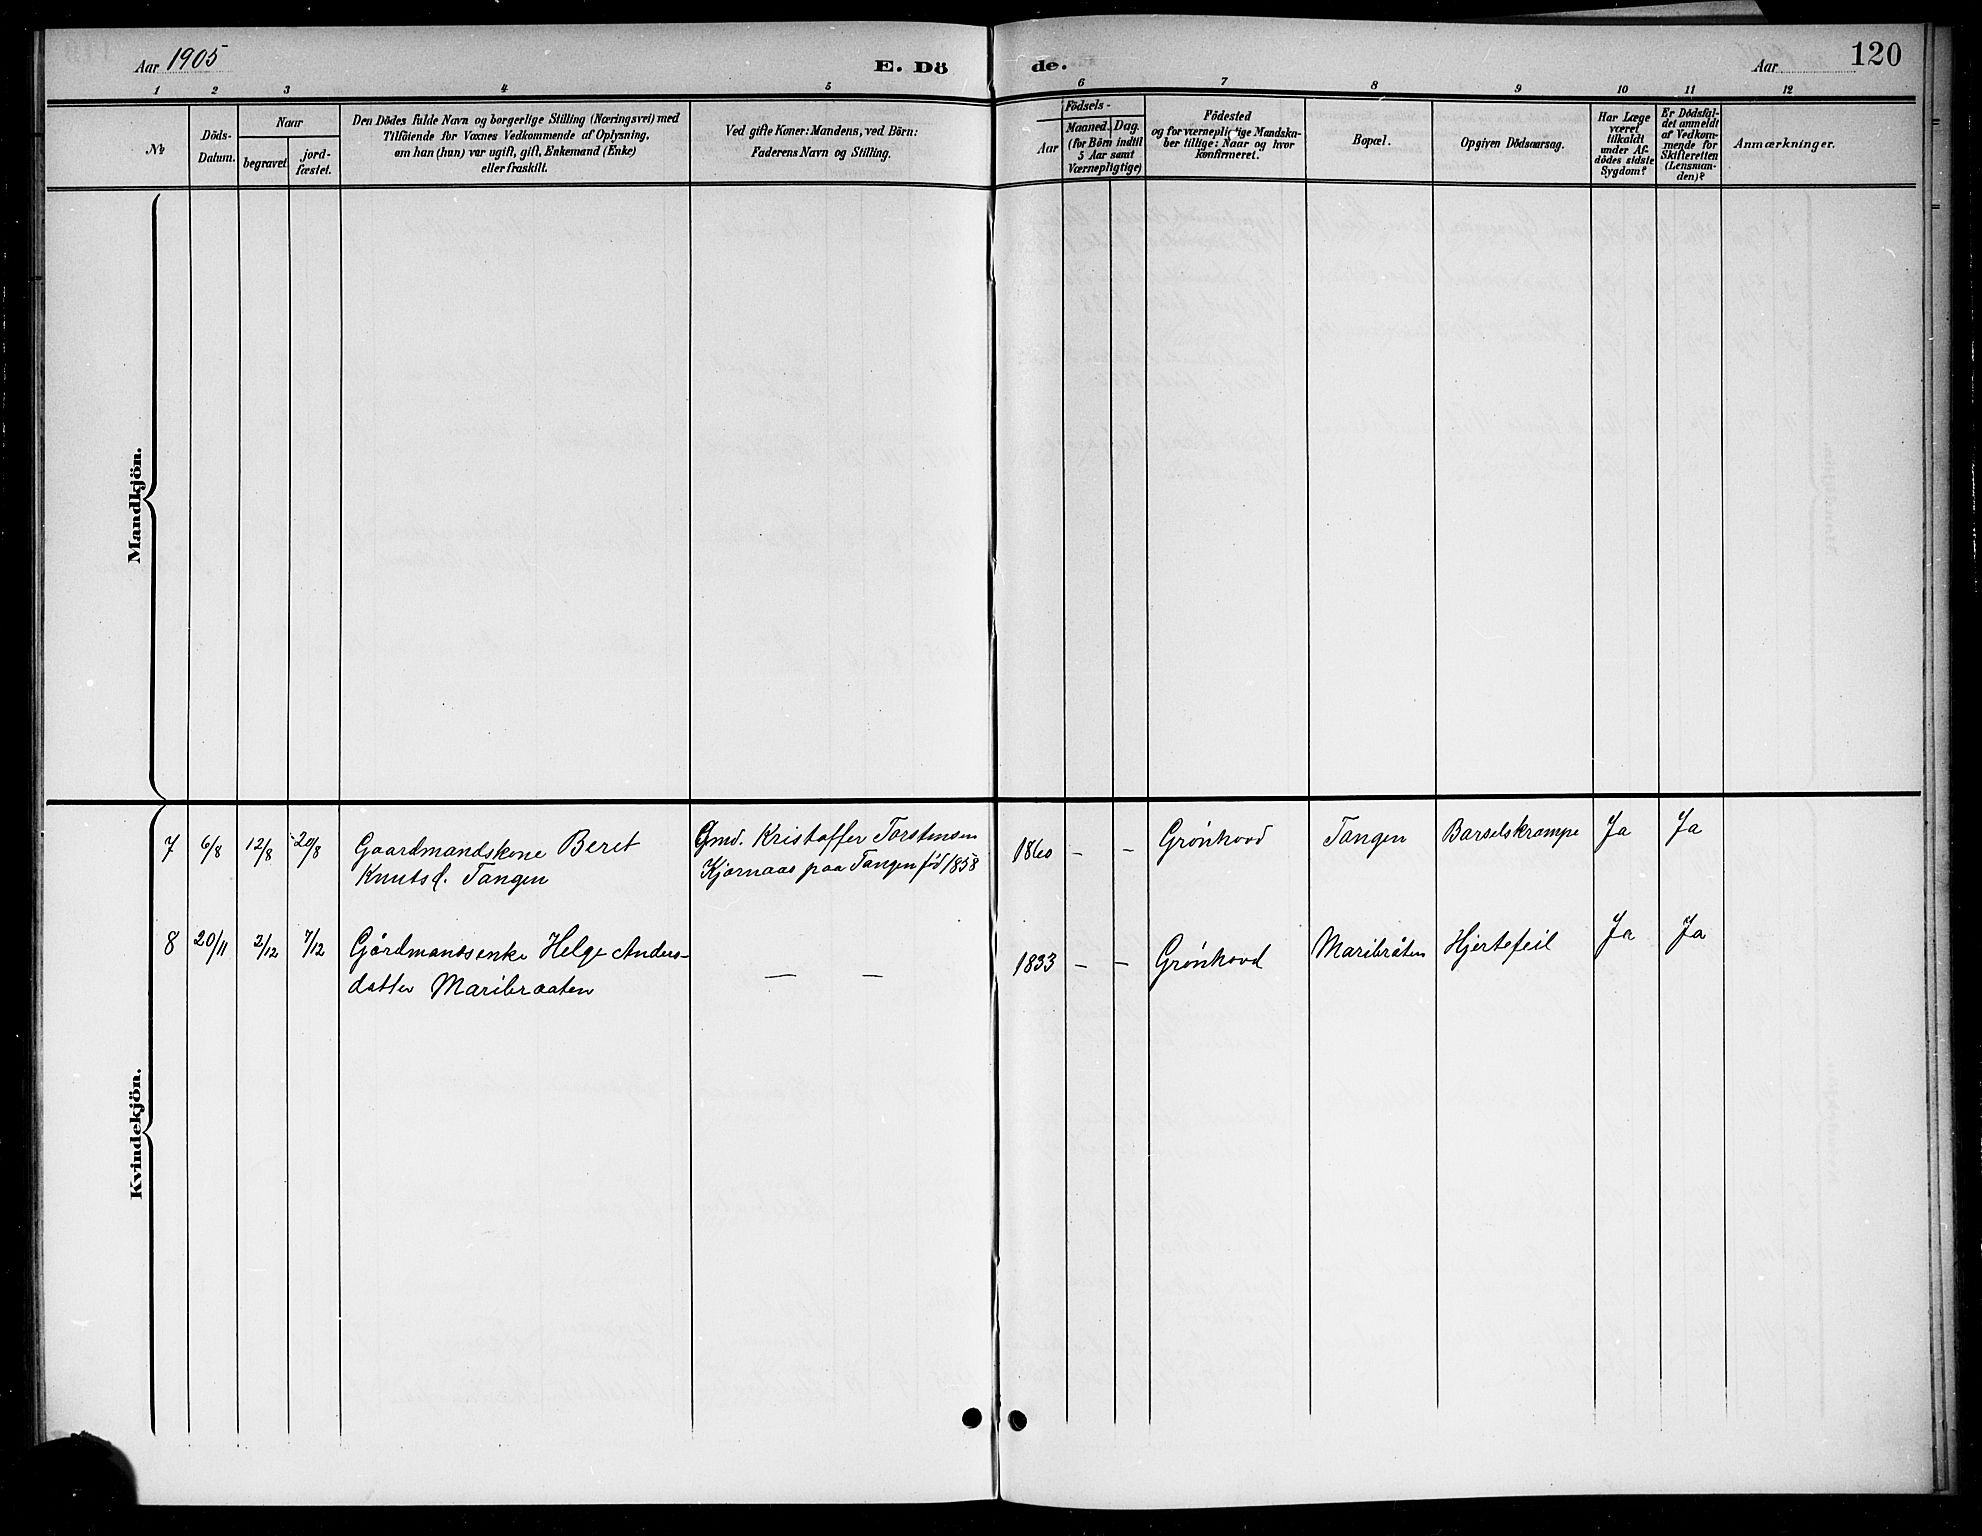 Aar 1905
E. Dö
de.
Aar
120
1 2 3 4 5 6 7 8 9 10 11 12
No
Döds-
Datum.
Naar
begravet.
jord-
fæstet.
Den Dödes fulde Navn og borgerlige Stilling (Næringsvei) med
Tilföiende for Voxnes Vedkommende af Oplysning,
om han (hun) var ugift, gift, Enkemand (Enke)
eller fraskilt.
Ved gifte Koner: Mandens, ved Börn:
Faderens Navn og Stilling.
Födsels-
Aar
Maaned. Dag.
(for Börn indtil
5 Aar samt
Værnepligtige)
Födested
og for værnepligtige Mandska-
ber tillige: Naar og hvor
konfirmeret.
Bopæl.
Opgiven Dödsaarsag.
Har Læge
været
tilkaldt
under Af-
dödes sidste
Sygdom?
Er Dödsfal-
det anmeldt
af Vedkom-
mende for
Skifteretten
(Lensman-
den)?
Anmærkninger.
Mandkjön.
Kvindekjön.
7 6/8 12/8 20/8 Gaardmandskone Beret
Knutsd. Tangen
Gmd. Kristoffer Torstensen
Kjørnaas paa Tangen fød 1858
1860 – – Grønhovd Tangen Barselskrampe Ja Ja
8 20/11 2/12 7/12 Gårdmandsenke Helge Anders-
datter Maribraaten
— —
1833 – – Grønhovd Maribråten Hjertefeil Ja Ja